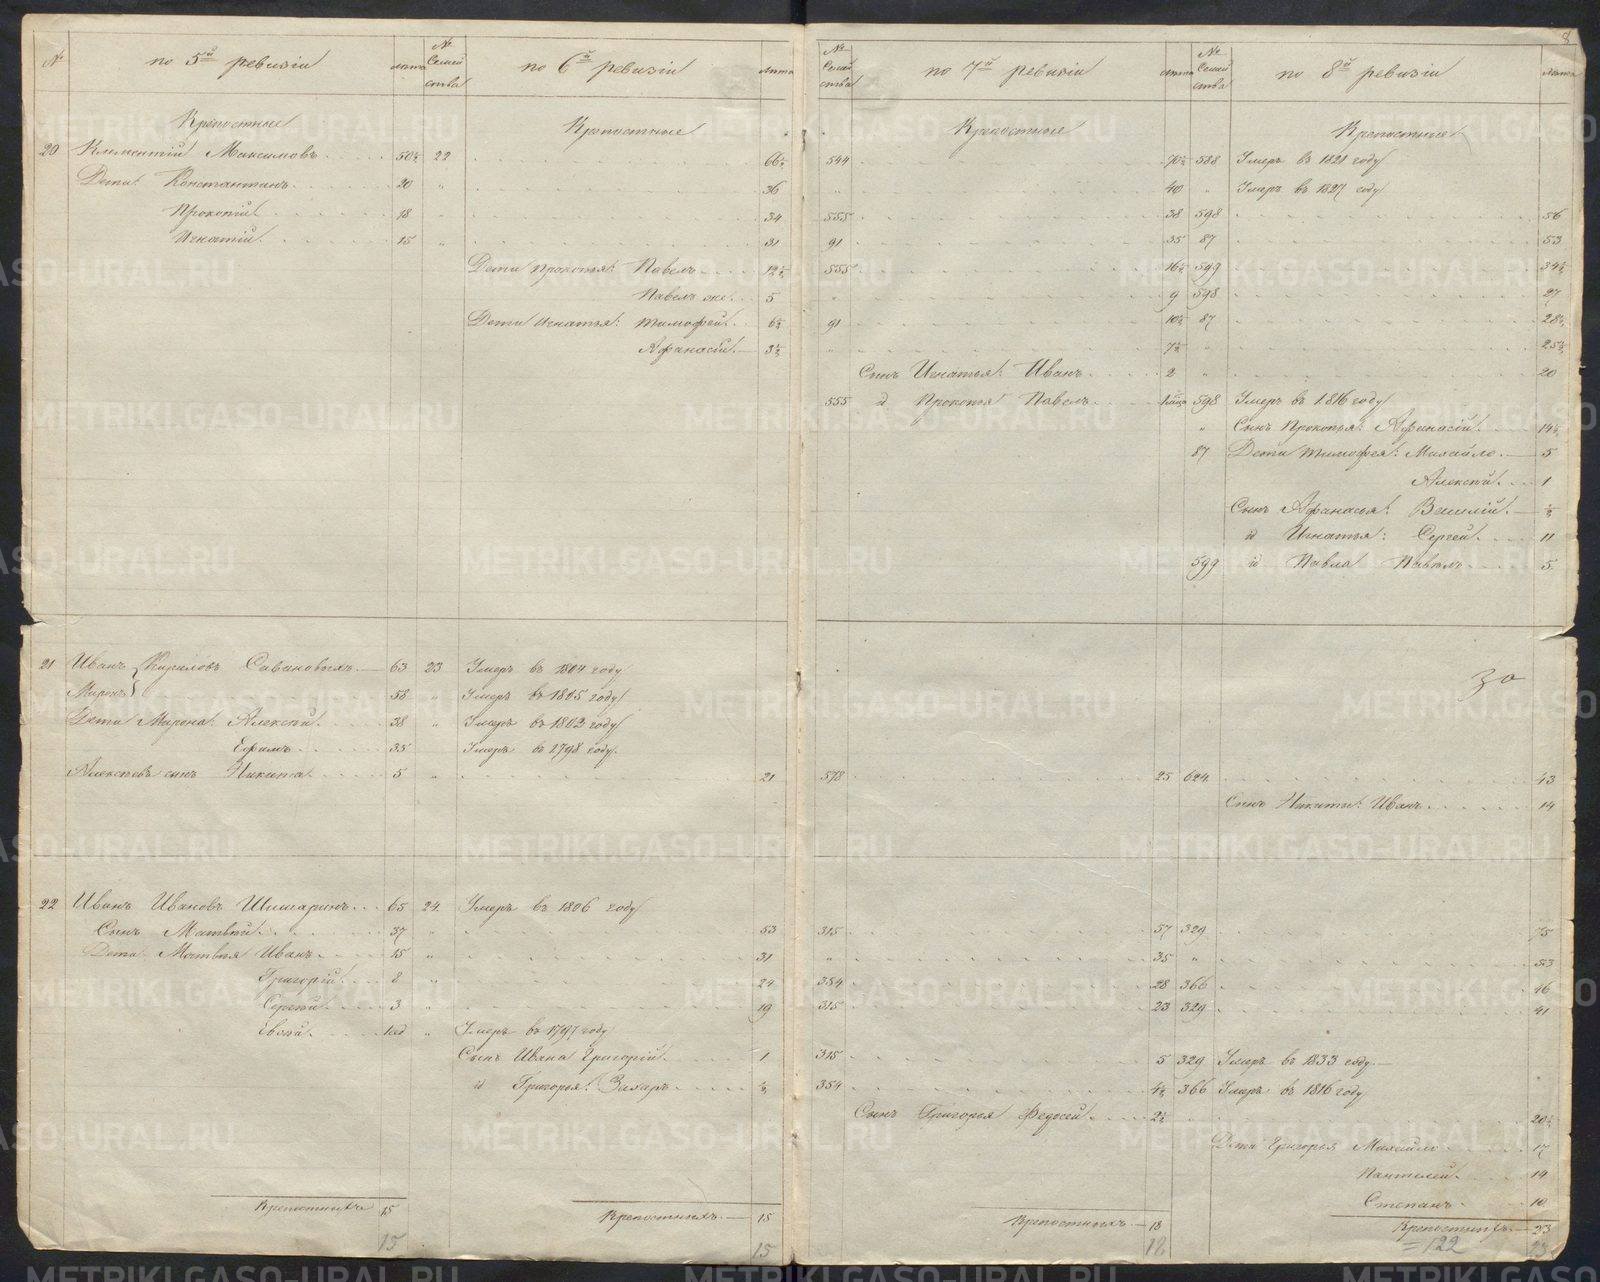 8
№ по 5й ревизіи лѣта № Семейства по 6й ревизіи лѣта № Семейства по 7й ревизіи лѣта № Семейства по 8й ревизіи лѣта
Крепостные Крепостные Крепостные Крепостные
20 Климентій Максимовъ 50½ 22 66½ 544 70½ 588 Умеръ въ 1821 году
Дети: Константинъ 20 " 36 " 40 " Умеръ въ 1827 году
Прокопій 18 " 34 555 38 598 56
Игнатій 15 " 31 91 35 87 53
Дети Прокопья: Павелъ 12½ 555 16½ 599 34½
Павелъ же 5 " 9 598 27
Дети Игнатья: Тимофей 6½ 91 10½ 87 28½
Афанасій 3½ " 7½ " 25½
Сынъ Игнатья: Иванъ 2 " 20
555 и Прокопья Павелъ 598 Умеръ въ 1816 году
" Сынъ Прокопья: Афанасій 14½
87 Дети Тимофея: Михайло 5
Алексѣй 1
Сынъ Афанасья: Василій ½
и Игнатья: Сергей 11
599 и Павла Павелъ 5
21 Иванъ Кириловъ 63 23 Умеръ въ 1804 году
Миронъ 58 " Умеръ въ 1805 году
30
Дети Мирона: Алексѣй 38 " Умеръ въ 1803 году
Ефимъ 35 Умеръ въ 1798 году
Алексѣевъ сынъ Никита 5 " 21 578 25 624 43
Сынъ Никиты: Иванъ 14
22 Иванъ Ивановъ Шишаринъ 65 24 Умеръ въ 1806 году
Сынъ Матвѣй 37 " 53 315 57 329 75
Дети Матвѣя Иванъ 15 " 31 " 35 " 53
Григорій 8 " 24 354 28 366 46
Сергѣй 3 " 19 315 23 329 41
Евсѣй " Умеръ въ 1797 году
Сынъ Ивана Григорій 1 315 5 329 Умеръ въ 1833 году
и Григорья: Захаръ ½ 354 4½ 366 Умеръ въ 1816 году
Сынъ Григорья Федосей 2½ 20½
Дети Григорья Михайло 17
Пантелей 14
Степанъ 10
Крепостныхъ 15 Крепостныхъ 15 Крепостныхъ 18 Крепостныхъ 23
15 15 18 =122 23
METRIKI.GASO-URAL.RU